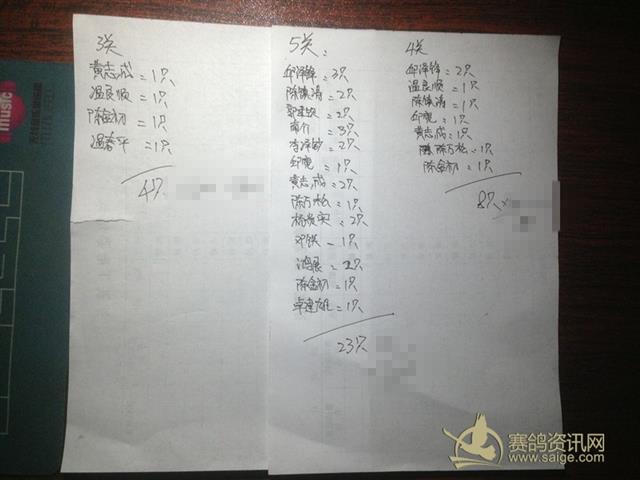 3关
黄志成=1只
温良顺=1只
陈金初=1只
温春平=1只
4只
5关:
邱泽锋=3只
陈镇清=2只
=2只
=3只
李泽敏=2只
邱亮=1只
黄志成=2只
陈万松=1只
杨发英=2只
邓铁-1只
鸿展=2只
陈金初=1只
卓建雄=1只
23只
4关
邱泽锋=2只
温良顺=1只
陈镇清=1只
邱亮=1只
黄志成=1只
陈万松=1只
陈金初=1只
8只
music
赛鸽资讯网
www.saige.com